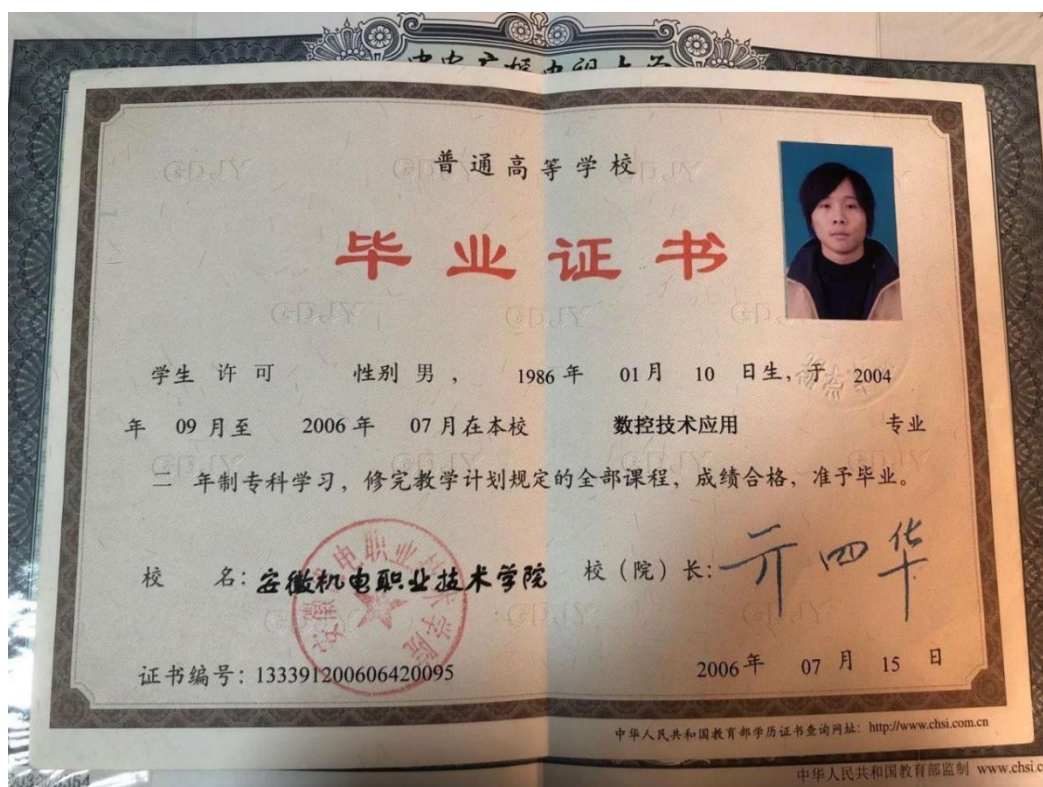 中央广播电视大学
普通高等学校
毕业证书
学生 许可 性别 男 ， 1986 年 01月 10 日生，于 2004
年 09 月至 2006 年 07 月在本校 数控技术应用 专业
二 年制专科学习，修完教学计划规定的全部课程，成绩合格，准予毕业。
校 名：安徽机电职业技术学院 校（院）长：
安徽机电职业技术学院
证书编号：133391200606420095 2006年 07 月 15 日
中华人民共和国教育部学历证书查询网址：http://www.chsi.com.cn
中华人民共和国教育部监制 www.chsi.c
GDJY